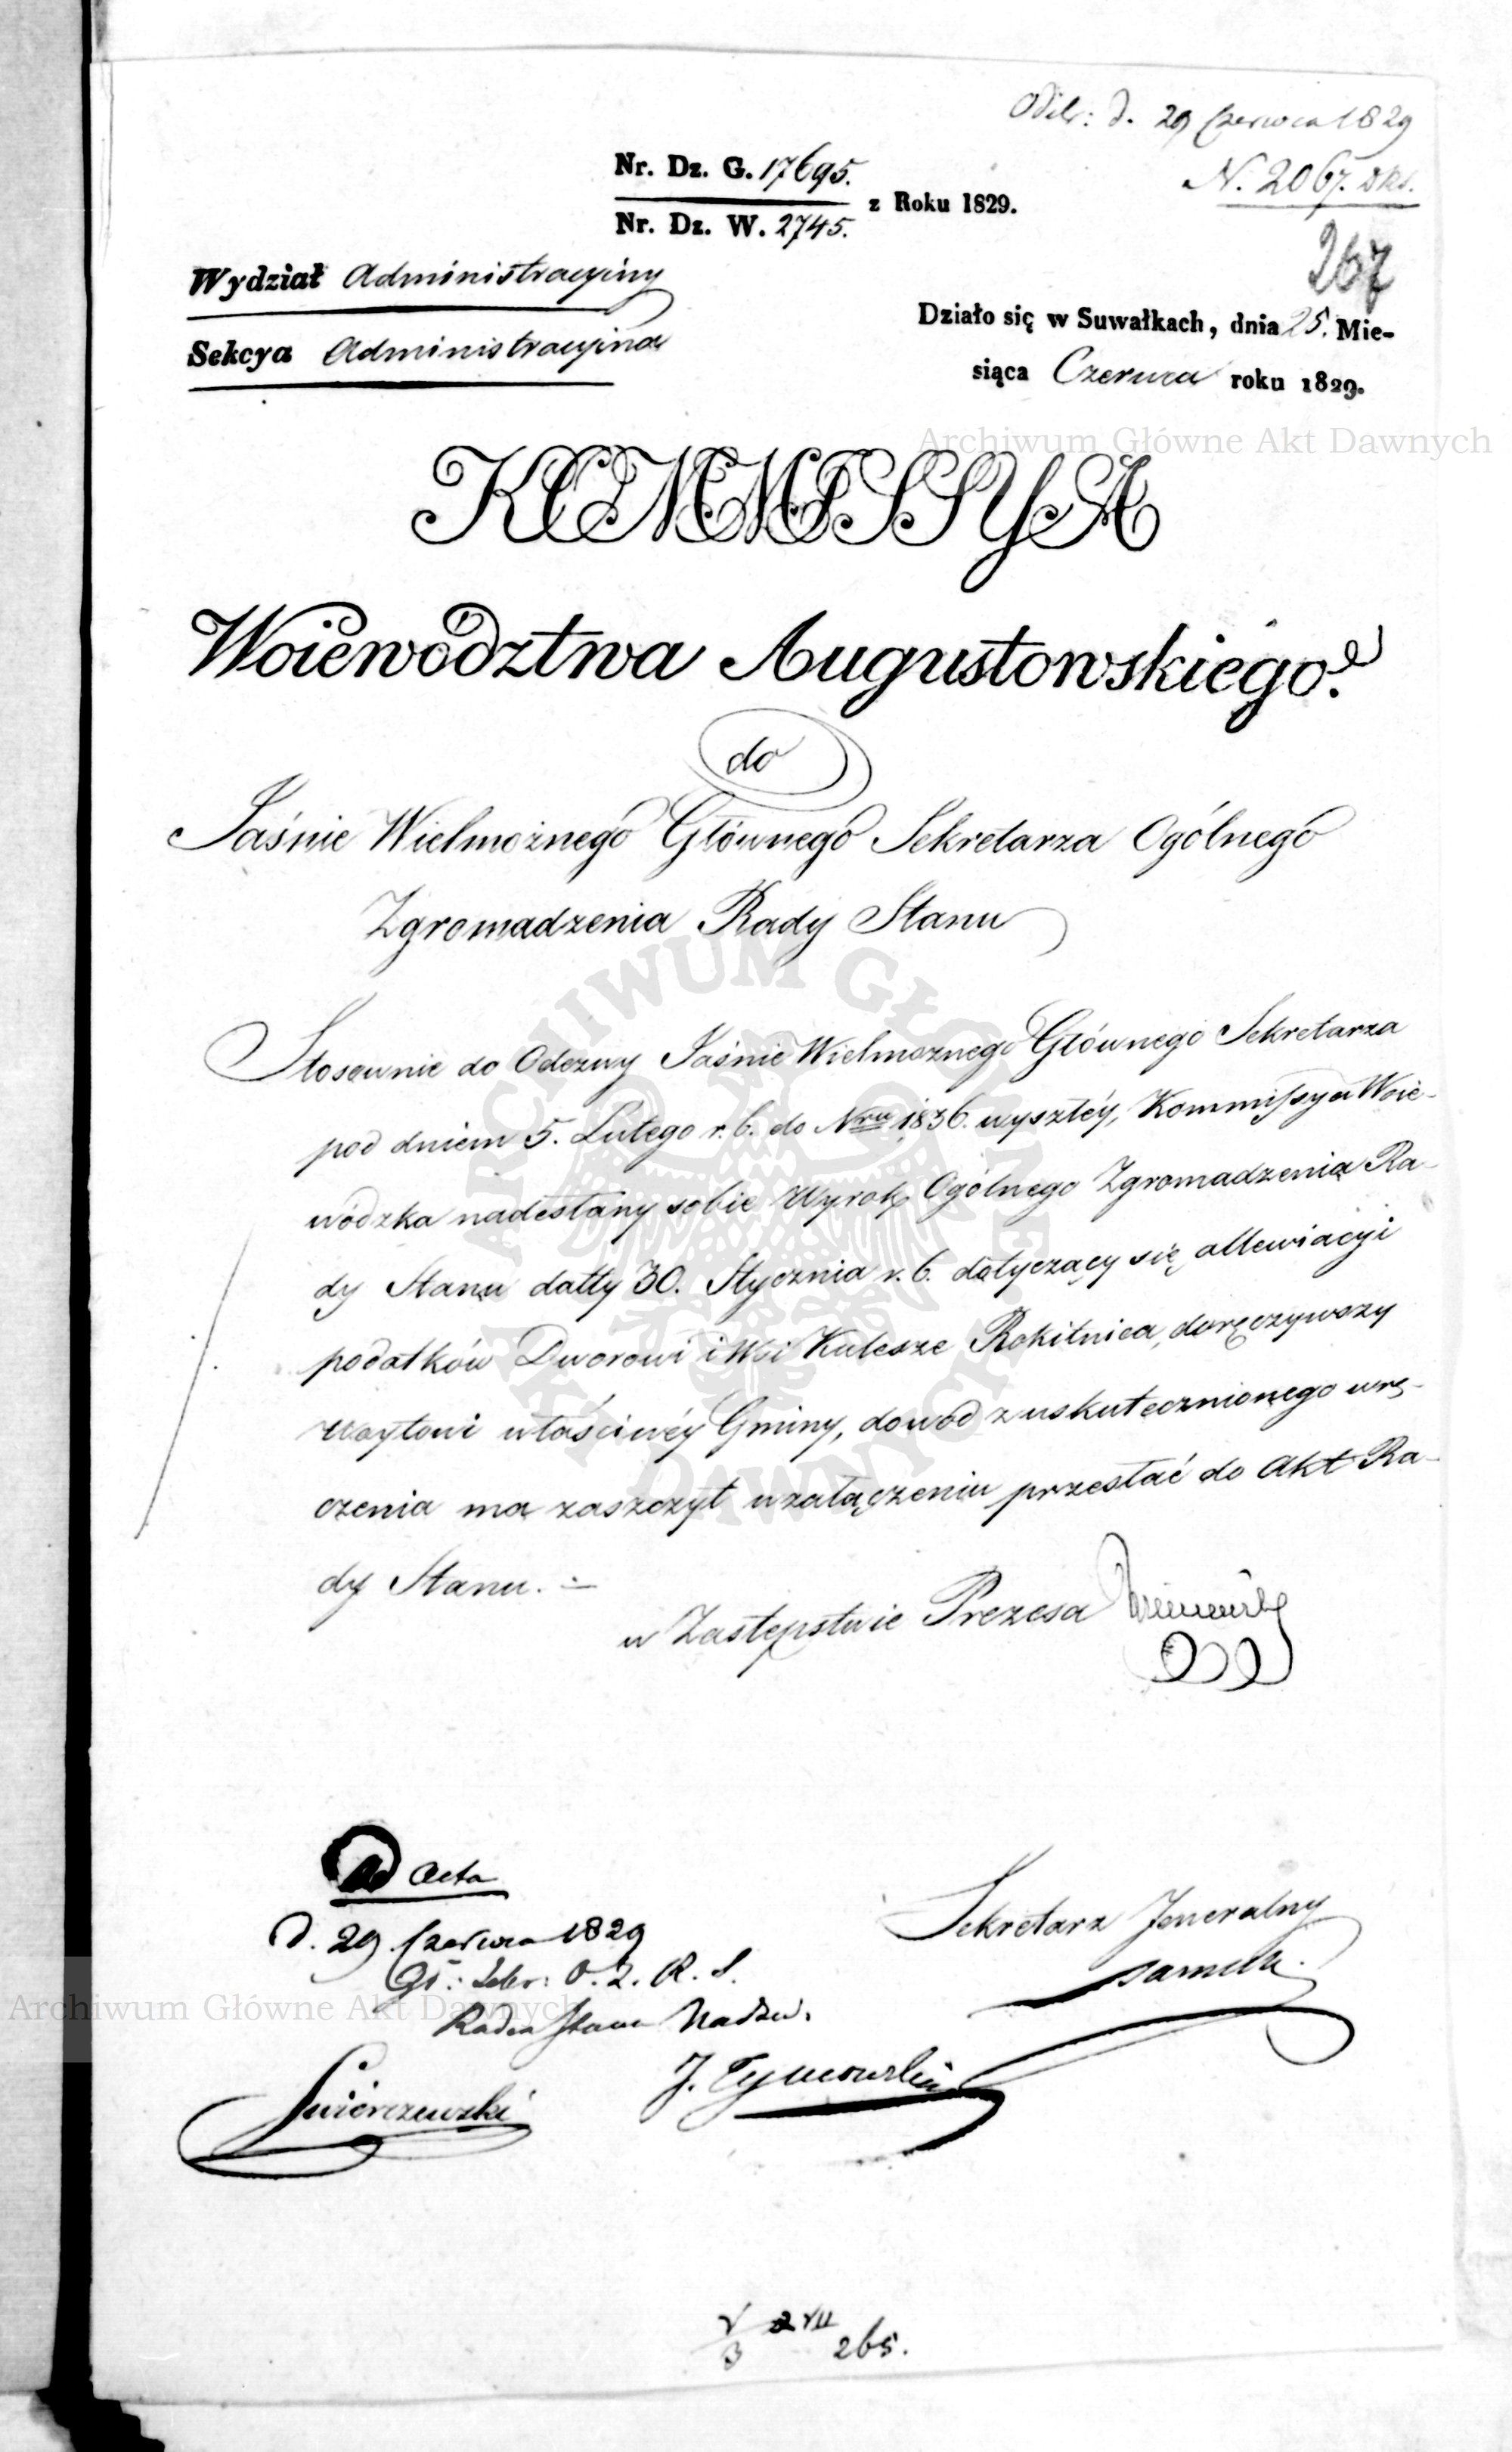 Odebr: d. 29 Czerwca 1829
N. 2067. Dks.
Nr. Dz. G. 17695.
z Roku 1829.
Nr. Dz. W. 2745.
267
Wydział Administracyiny
Sekcya Administracyina
Działo się w Suwałkach, dnia 25. Mie-
siąca Czerwca roku 1829.
Archiwum Główne Akt Dawnych
KOMMISSYA
Woiewództwa Augustowskiego.
do
Jaśnie Wielmożnego Głównego Sekretarza Ogólnego
Zgromadzenia Rady Stanu
Stosownie do Odezwy Jaśnie Wielmożnego Głównego Sekretarza
pod dniem 5. Lutego r. b. do Nru 1836. wyszłéy, Kommissya Woie-
wódzka nadesłany sobie Wyrok Ogólnego Zgromadzenia Ra-
dy Stanu datty 30. Stycznia r. b. dotyczący się allewiacyi
podatków Dworowi i Wsi Kulesze Rokitnica, doręczywszy
Woytowi właściwéy Gminy, dowód z uskutecznionego wrę-
czenia ma zaszczyt w załączeniu przesłać do Akt Ra-
dy Stanu.
w Zastępstwie Prezesa
ARCHIWUM GŁÓWNE AKT DAWNYCH
Ad Acta
d. 29 Czerwca 1829
Gł: Sekr: O. Z. R. S.
Radca Stanu Nadzw.
J. Tymowski
Sekretarz Jeneralny
Archiwum Główne Akt Dawnych
Świerczewski
V/3 2 VII 265.